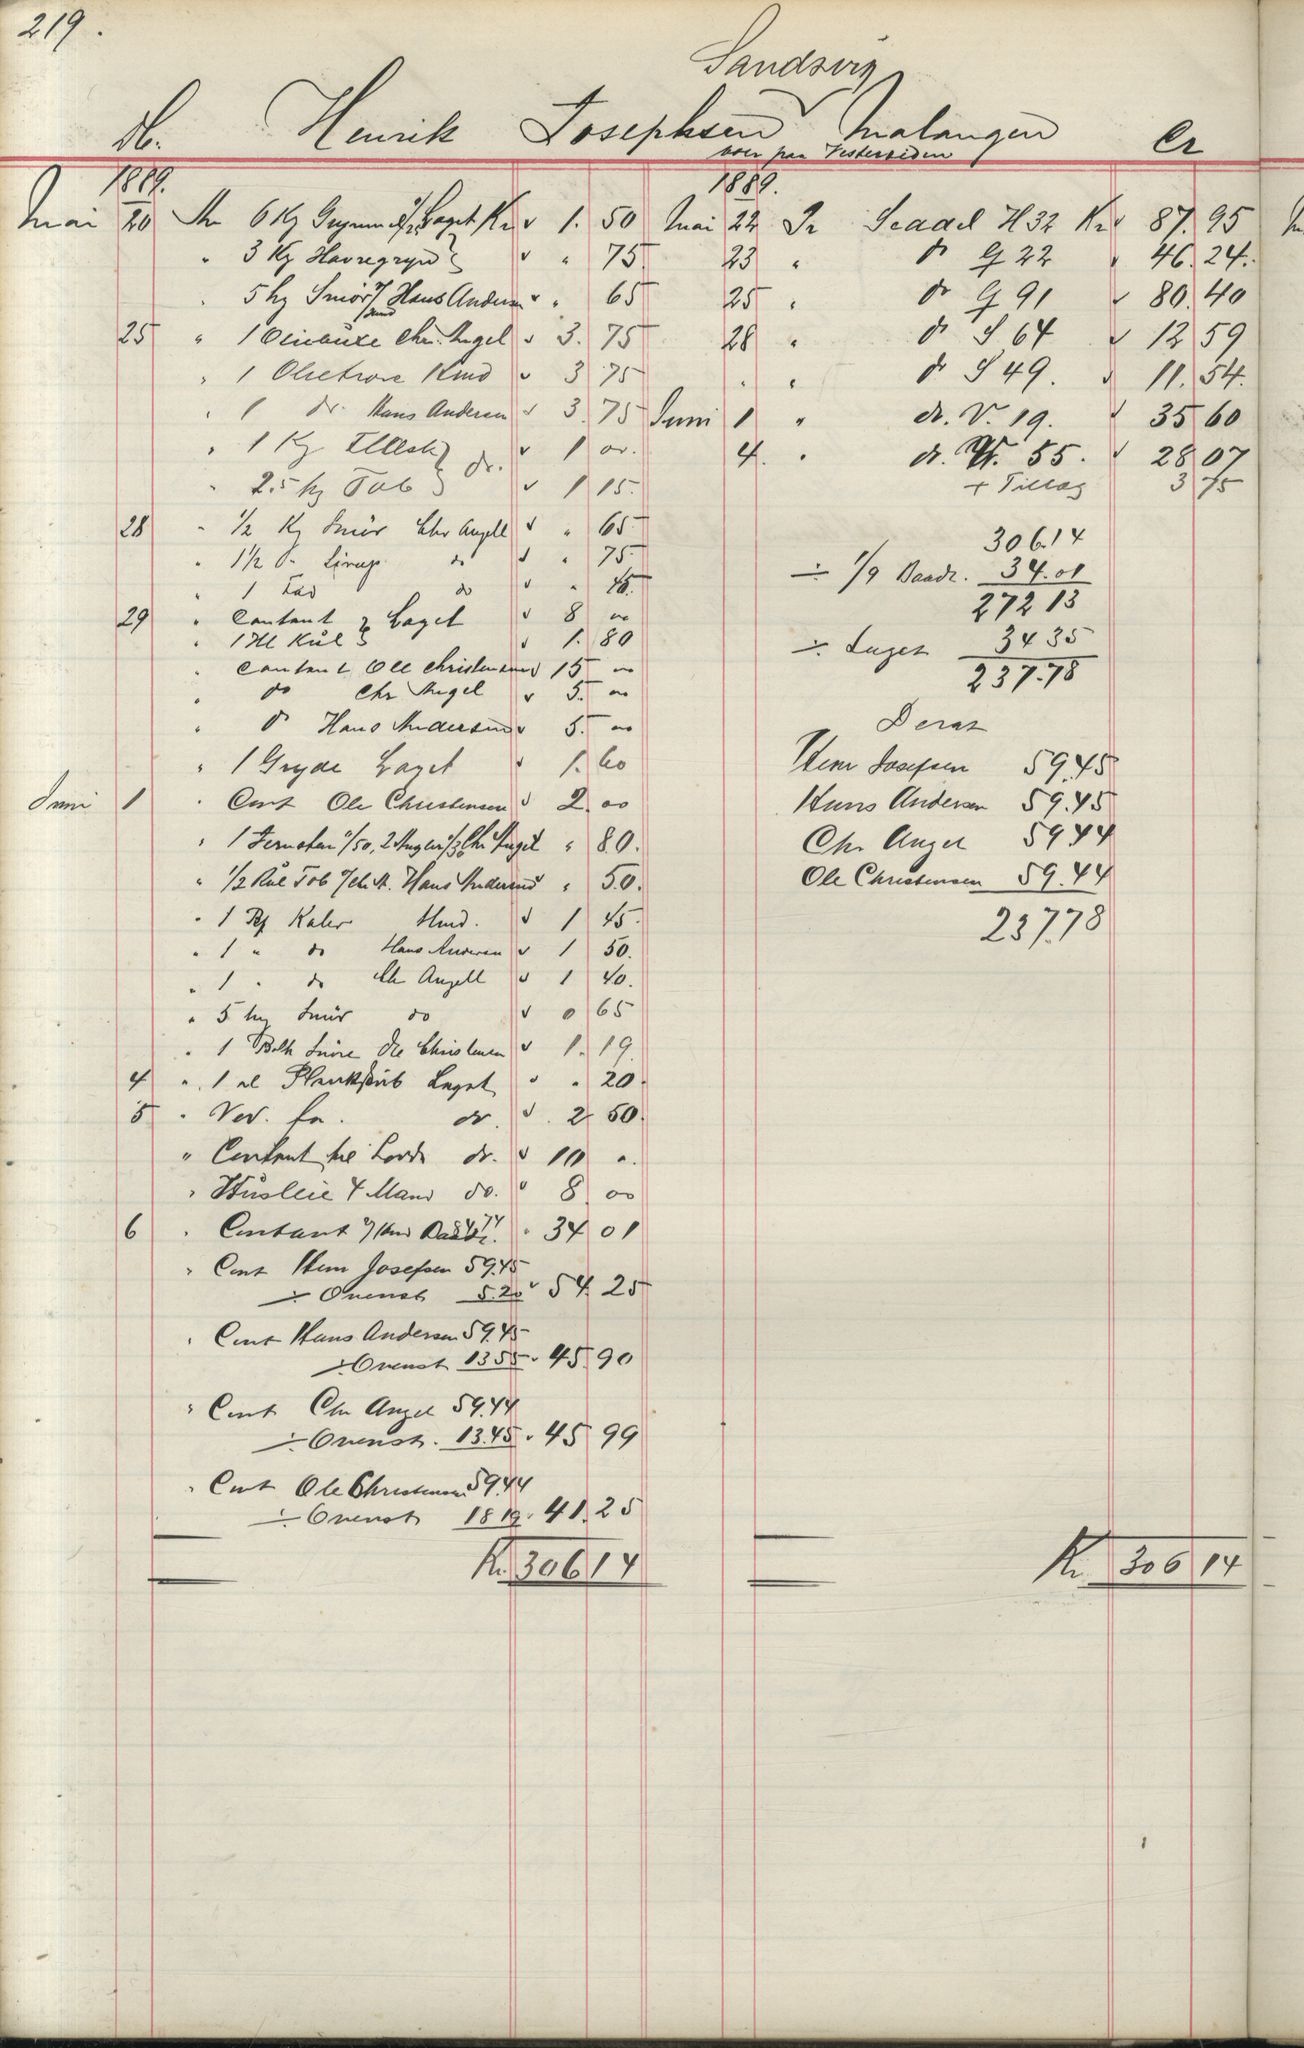 219.
Sandsvig
Db. Henrik Josephsen Malangen Cr
boer paa Vestersiden
1889.
Mai 20 An 6 Kg Grynmel Laget Kr 1. 50
" 3 Kg Havregryn " 75
" 5 hg Smør Hans Andersen " 65
25 " 1 Oliebuxe Chr. Angel 3. 75
" 1 Olietroie Hmd 3 75
" 1 do. Hans Andersen 3. 75
" 1 Kg dr. 1 00.
" 2.5 hg Tob 1 15.
28 " 1/2 Kg Smör Chr Angell " 65
" 1 1/2 d. Sirup do " 75
" 1 Fad do " 45.
29 " Contant Laget 8 00
" 1 Hl Kul 1. 80
" Contant Ole Christensen 15 00
" do Chr Angel 5. 00
" d Hans Andersen 5. 00
" 1 Gryde Laget 1. 60
Juni 1 " Cont Ole Christensen 2. 00
" 1 /50, 2 Angler /30 Chr Angel " 80.
" 1/2 Rul Tob Hans Andersen " 50.
" 1 Pf Kaler Hmd. 1 45
" 1 " do Hans Andersen 1 50.
" 1 " do Chr Angell 1 40.
" 5 hg Smör do 0 65
" 1 Snöre Ole Christensen 1. 19
4 " 1 Laget " 20.
5 " Ved. fa. do. 2 50.
" Contant til Lods do. 10 "
" Husleie 4 Mand do. 8 00
6 " Contant 34 01
" Cont Henr Josefsen 59.45
÷ Ovenst 5.20 54. 25
" Cont Hans Andersen 59.45
÷ Ovenst 13.55 45. 90
" Cont Chr Angel 59.44
÷ Ovenst. 13.45 45 99
" Cont Ole Christensen 59.44
÷ Ovenst 18.19 41. 25
Kr. 306 14
1889.
Mai 22 Pr Seddel H 32 Kr 87. 95
23 " do G 22 46. 24.
25 " do G 91 80. 40
28 " do S 64 12 59
" " do S 49. 11. 54.
Juni 1 " do. V. 19. 35 60
4. " do. 55. 28 07
+ Tillæg 3 75
306.14
÷ 1/9 Baadl. 34.01
272 13
÷ Laget 34 35
237.78
Deraf
Henr Josefsen 59.45
Hans Andersen 59.45
Chr Angel 59.44
Ole Christensen 59.44
237.78
Kr 306 14